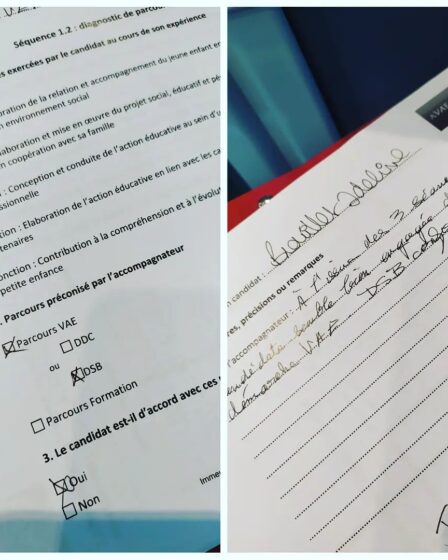 Séquence 1.2 : diagnostic de parcou
es exercées par le candidat au cours de son expérience
ration de la relation et accompagnement du jeune enfant en
n environnement social
aboration et mise en œuvre du projet social, éducatif et pé
n coopération avec sa famille
: Conception et conduite de l'action éducative au sein d'u
ssionnelle
tion : Elaboration de l'action éducative en lien avec les ca
tenaires
onction : Contribution à la compréhension et à l'évolut
petite enfance
. Parcours préconisé par l'accompagnateur
Parcours VAE
DDC
ou
DSB
Parcours Formation
3. Le candidat est-il d'accord avec ces
Oui
Non
Imme
AVA
n candidat :
res, précisions ou remarques
l'accompagnateur : À l'issue des 3 séan
semble bien engagée d
démarche V.A.E DSB